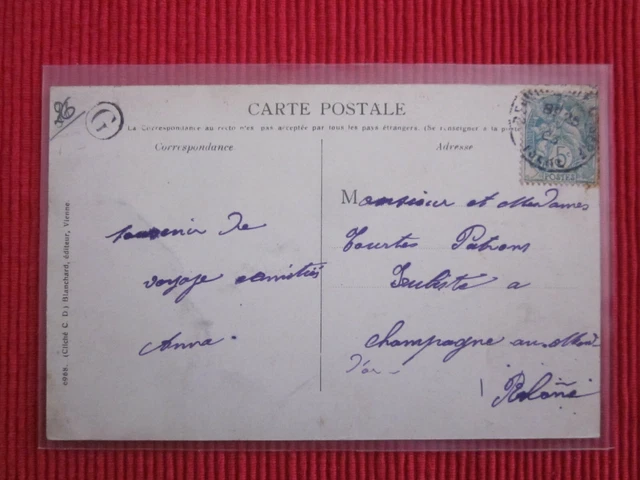 86
G
CARTE POSTALE
La Correspondance au recto n'est pas acceptée par tous les pays étrangers. (Se renseigner à la poste
Correspondance
Adresse
5c
POSTES
souvenir de
voyage
Anna.
Monsieur et Mesdames
Tourtes Patrons
a
Champagne au Mont
d'or
Rhône
6969. (Cliché C. D.) Blanchard, éditeur, Vienne.